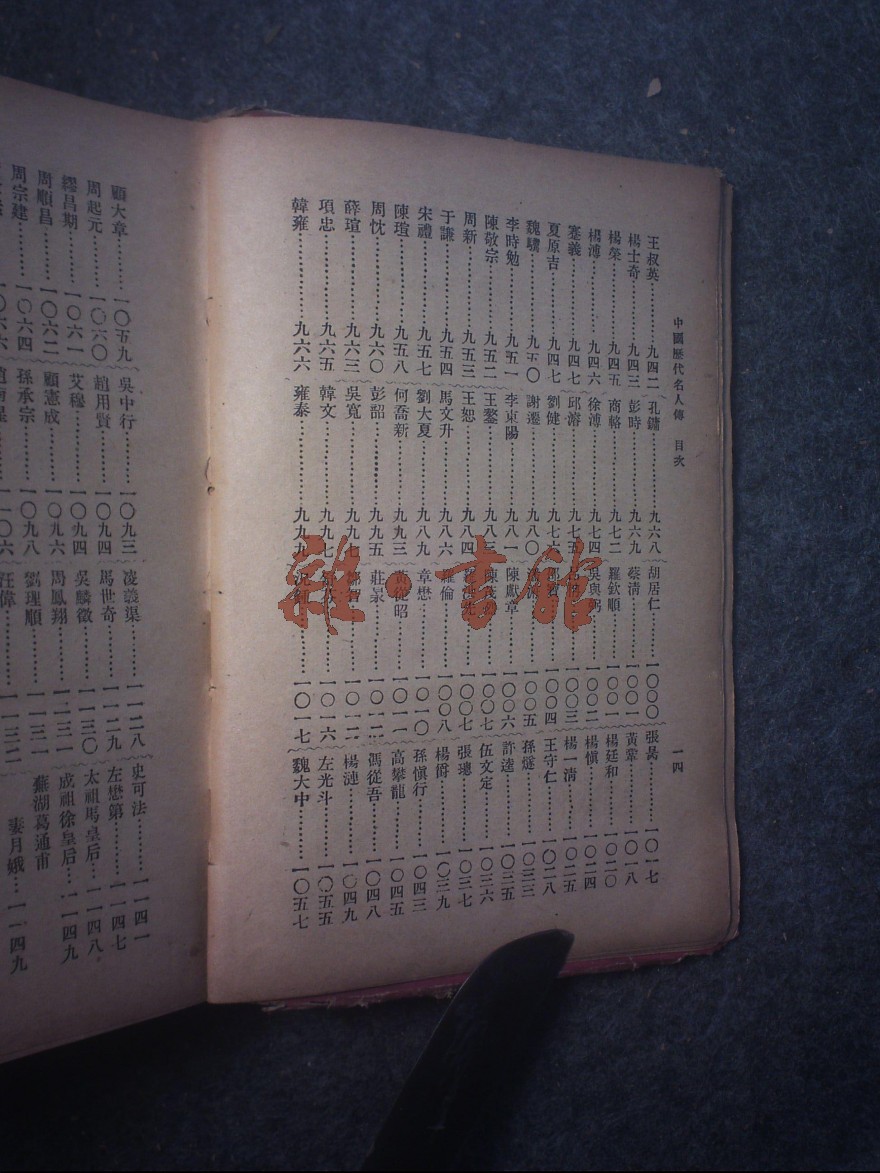 中國歷代名人傳 目次
一四
王叔英………九四二
楊士奇………九四三
楊榮………九四五
楊溥………九四六
蹇義………九四七
夏原吉………九四七
魏驥………九五〇
李時勉………九五一
陳敬宗………九五二
周新………九五三
于謙………九五四
宋禮………九五七
陳瑄………九五八
周忱………九六〇
薛瑄………九六三
項忠………九六五
韓雍………九六六
孔鏞………九六八
彭時………九六九
商輅………九七二
徐溥………九七四
邱濬………九七五
劉健………九七六
謝遷………九八〇
李東陽………九八一
王鏊………九八三
王恕………九八四
馬文升………九八六
劉大夏………九八九
何喬新………九九三
彭韶………九九五
吳寬………九九七
韓文………九九七
雍泰………九九九
胡居仁………一〇〇〇
蔡清………一〇〇一
羅欽順………一〇〇一
吳與弼………一〇〇二
………一〇〇三
………一〇〇四
………一〇〇五
陳獻章………一〇〇六
陳茂………一〇〇七
………一〇〇七
羅倫………一〇〇八
章懋………一〇一〇
黃從昭………一〇一一
莊㫤………一〇一二
鄒智………一〇一二
………一〇一六
………一〇一七
張昺………一〇一七
黃鞏………一〇一八
楊廷和………一〇二〇
楊愼………一〇二四
楊一清………一〇二五
王守仁………一〇二八
孫燧………一〇三三
許逵………一〇三五
伍文定………一〇三六
張璁………一〇三七
楊爵………一〇三九
孫愼行………一〇四三
高攀龍………一〇四五
馮從吾………一〇四八
楊漣………一〇四九
左光斗………一〇五五
魏大中………一〇五七
顧大章………一〇五九
周起元………一〇六〇
繆昌期………一〇六一
周順昌………一〇六二
周宗建………一〇六四
一〇六六
吳中行………一〇九三
趙用賢………一〇九四
艾穆………一〇九四
顧憲成………一〇九六
孫承宗………一〇九八
趙南星………一一〇六
凌義渠………一一二八
馬世奇………一一二九
吳麟徵………一一三〇
周鳳翔………一一三一
劉理順………一一三一
汪偉………一一三二
史可法………一一四一
左懋第………一一四七
太祖馬皇后…一一四八
成祖徐皇后…一一四九
蕪湖葛通甫
妻月娥…一一四九
雜·書館